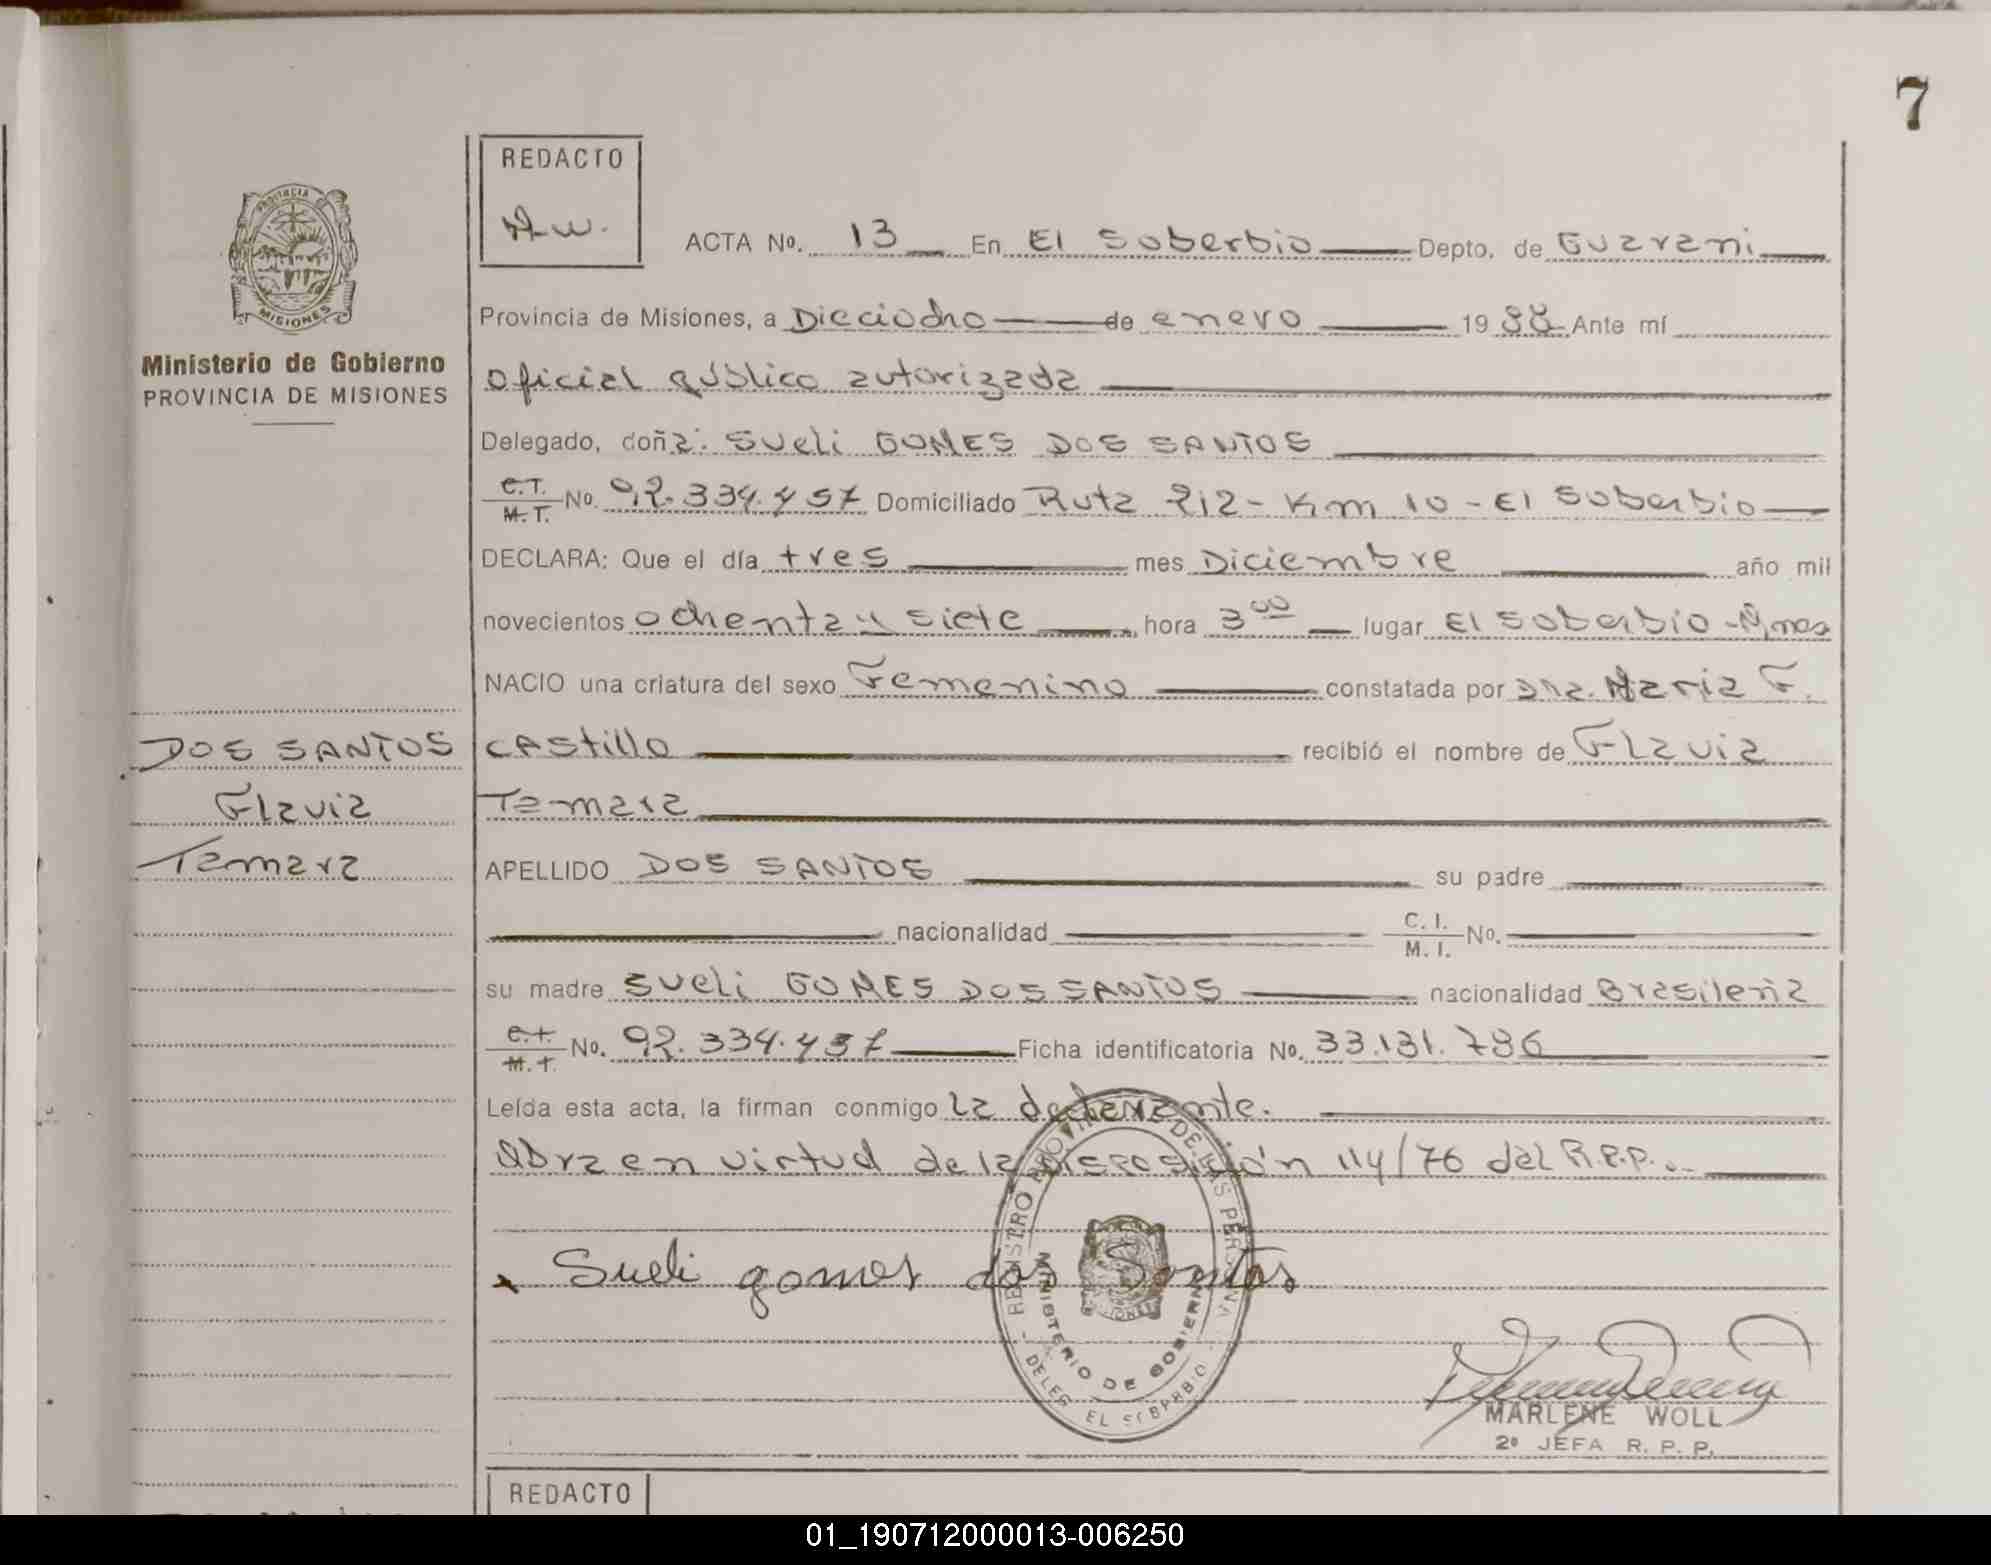 7
REDACTO
A.w.
ACTA Nº. 13 En El Soberbio Depto. de Guarani
Provincia de Misiones, a Dieciocho de enero 1988 Ante mí
Oficial público autorizada
Delegado, doña: Sueli GOMES DOS SANTOS
C.T. M.T. No. 92.334.457 Domiciliado Ruta 212 - Km 10 - El Soberbio
DECLARA: Que el día tres mes Diciembre año mil
novecientos ochenta y siete hora 3 00 lugar El Soberbio - Mnes
NACIO una criatura del sexo Femenino constatada por Dra. Maria F.
Castillo recibió el nombre de Flavia
Tamara
APELLIDO DOS SANTOS su padre
nacionalidad C. I. M. I. No.
su madre Sueli GOMES DOS SANTOS nacionalidad Brasileña
C.T. M.T. No. 92.334.457 Ficha identificatoria No. 33.131.786
Leída esta acta, la firman conmigo la declarante.
Obra en virtud de la Disposición 114/76 del R.P.P.
Sueli gomes dos Santos
REGISTRO PROVINCIAL DE LAS PERSONAS
MINISTERIO DE GOBIERNO
DELEG. EL SOBERBIO
MARLENE WOLL
2º JEFA R. P. P.
REDACTO
PROVINCIA
MISIONES
Ministerio de Gobierno
PROVINCIA DE MISIONES
DOS SANTOS
Flavia
Tamara
01_190712000013-006250